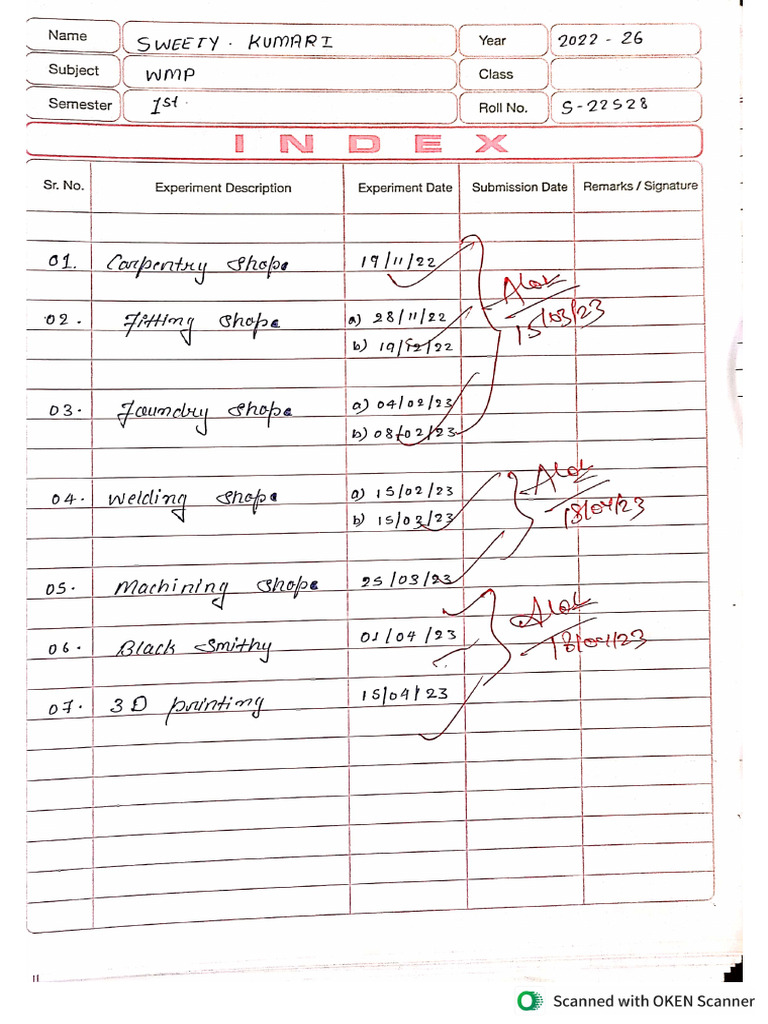 Name SWEETY. KUMARI Year 2022 - 26
Subject WMP Class
Semester 1st. Roll No. S-22528
INDEX
Sr. No. Experiment Description Experiment Date Submission Date Remarks / Signature
01. Carpentry Shope 19/11/22
02. Fitting Shope a) 28/11/22
b) 19/12/22
15/03/23
03. Foundry Shope a) 04/02/23
b) 08/02/23
04. Welding Shope a) 15/02/23
b) 15/03/23
18/04/23
05. Machining Shope 25/03/23
06. Black Smithy 01/04/23
18/04/23
07. 3D printing 15/04/23
11
Scanned with OKEN Scanner